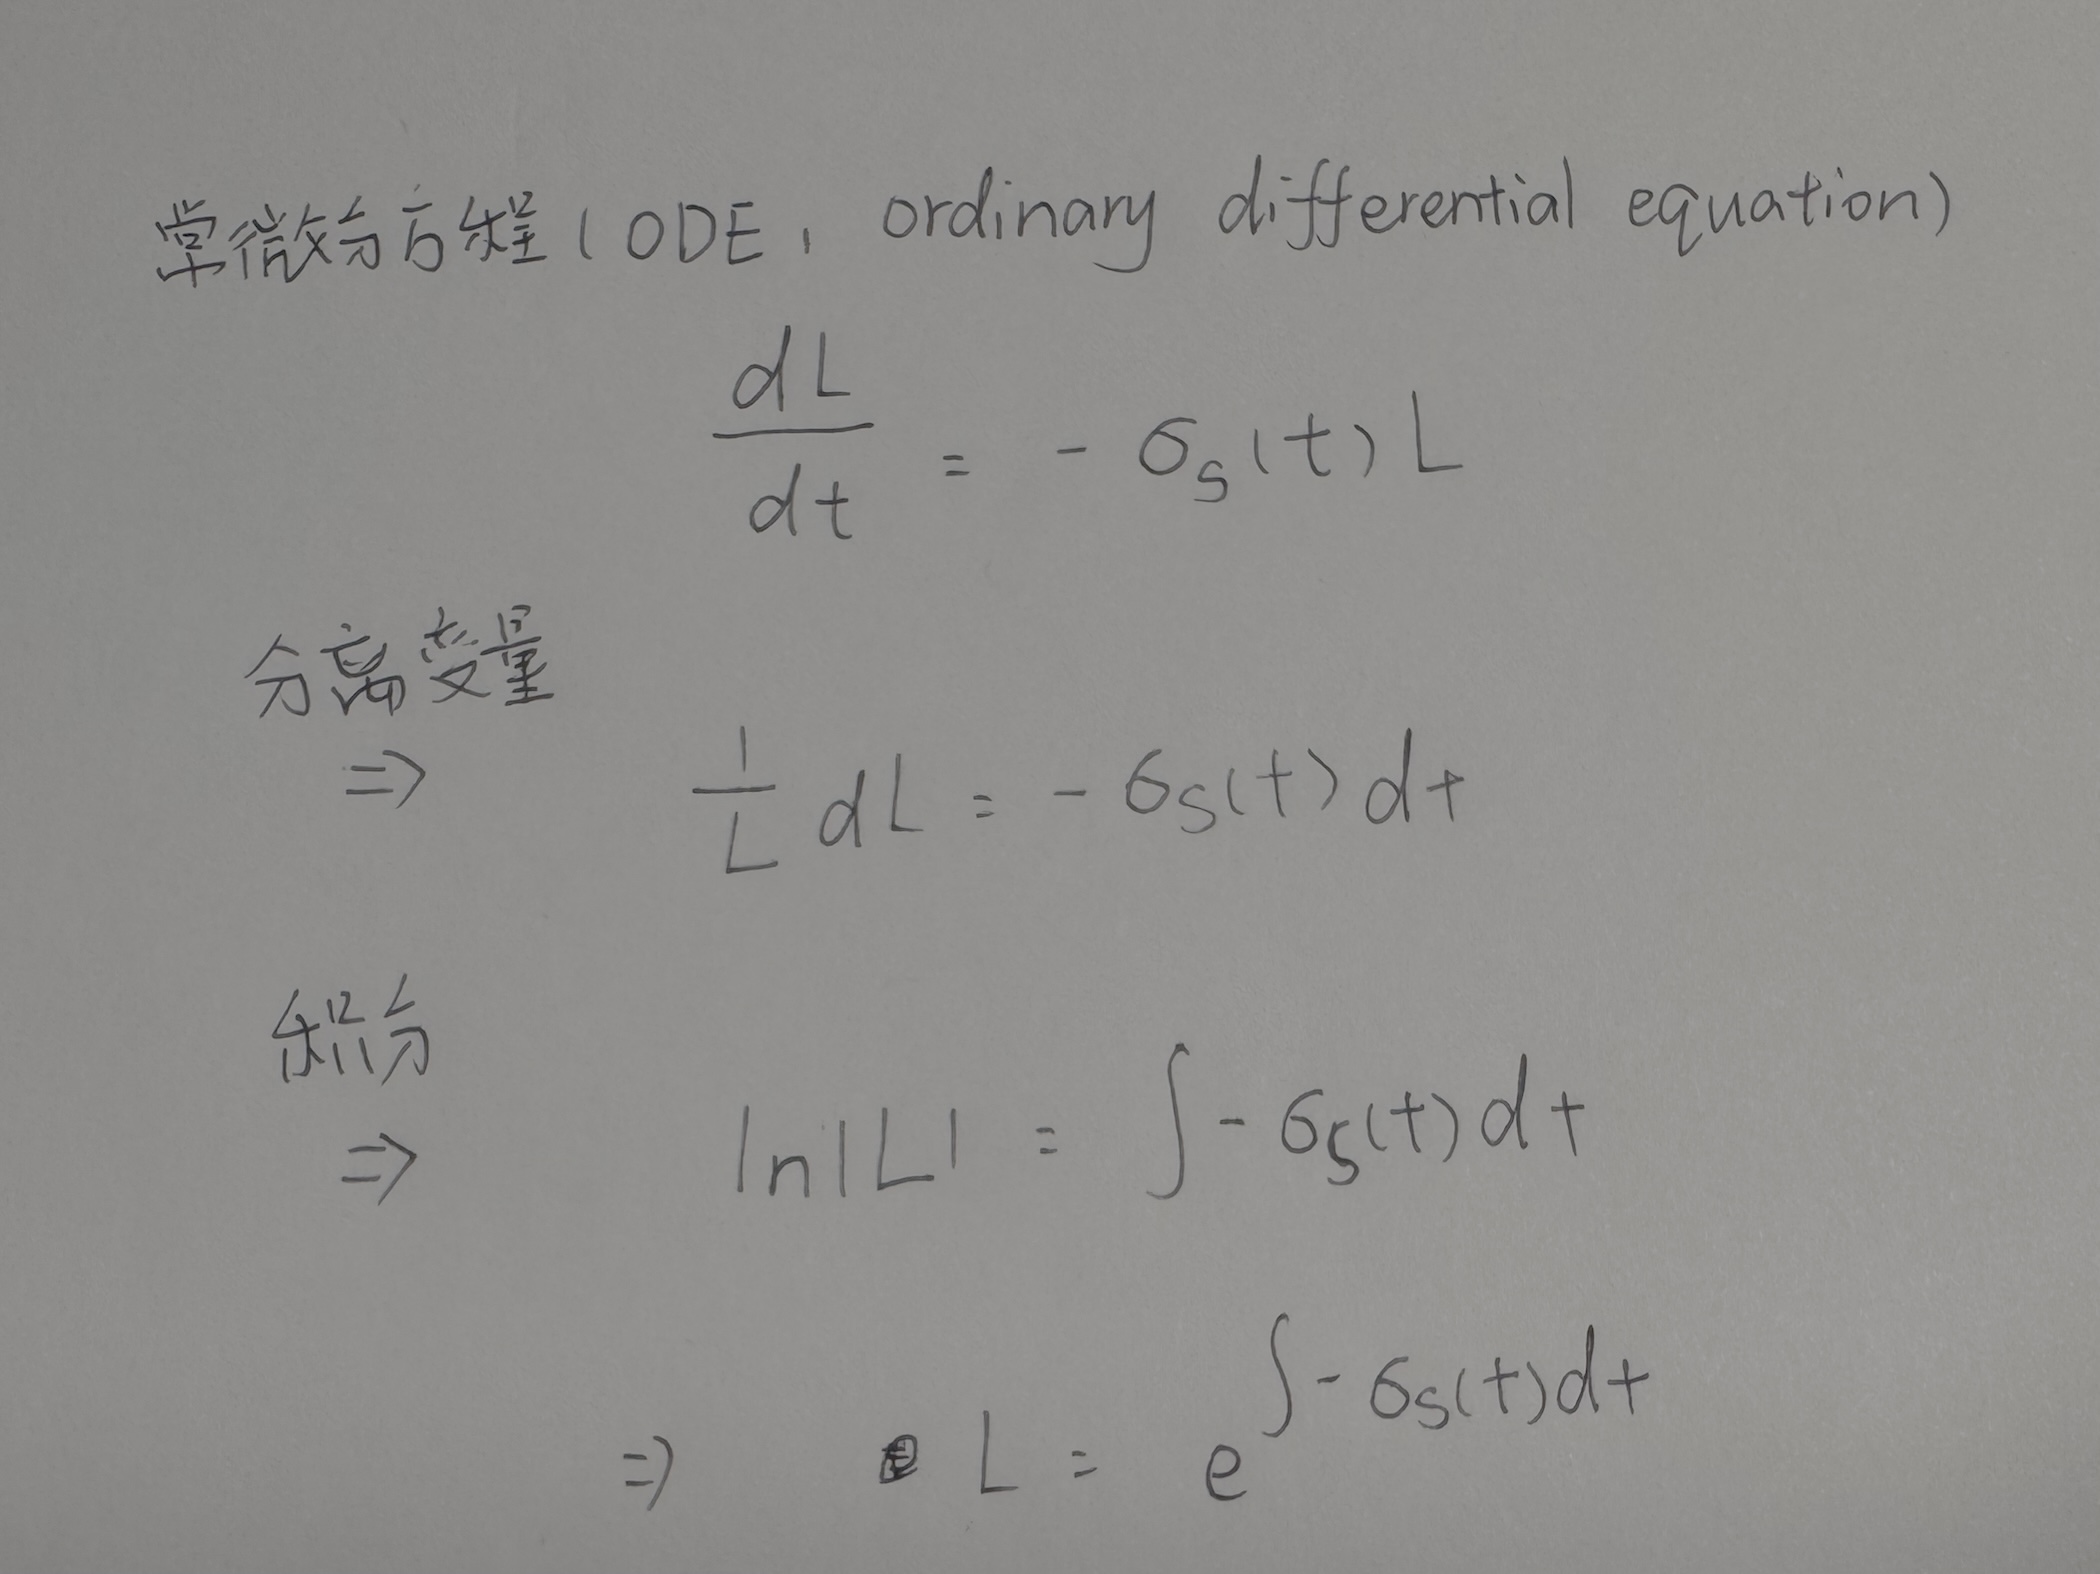 常微分方程(ODE, ordinary differential equation)
dL/dt = - σₛ(t) L
分离变量
⇒ 1/L dL = - σₛ(t) dt
积分
⇒ ln|L| = ∫ - σₛ(t) dt
⇒ L = e^∫ - σₛ(t) dt